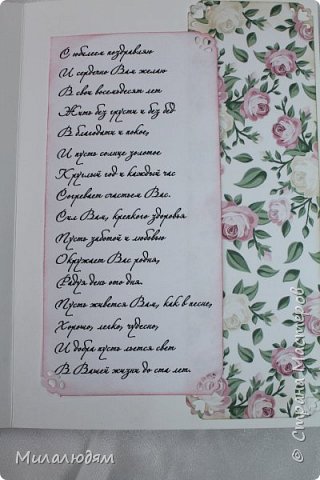 С юбилеем поздравляю
И сердечно Вам желаю
В свои восемьдесят лет
Жить без грусти и без бед
В благодати и покое,
И пусть солнце золотое
Круглый год и каждый час
Согревает счастьем Вас.
Сил Вам, крепкого здоровья
Пусть заботой и любовью
Окружает Вас родня,
Радуя день ото дня.
Пусть живется Вам, как в песне,
Хорошо, легко, чудесно,
И добра пусть льется свет
В Вашей жизни до ста лет.
© Страна Мастеров
Милалюдям